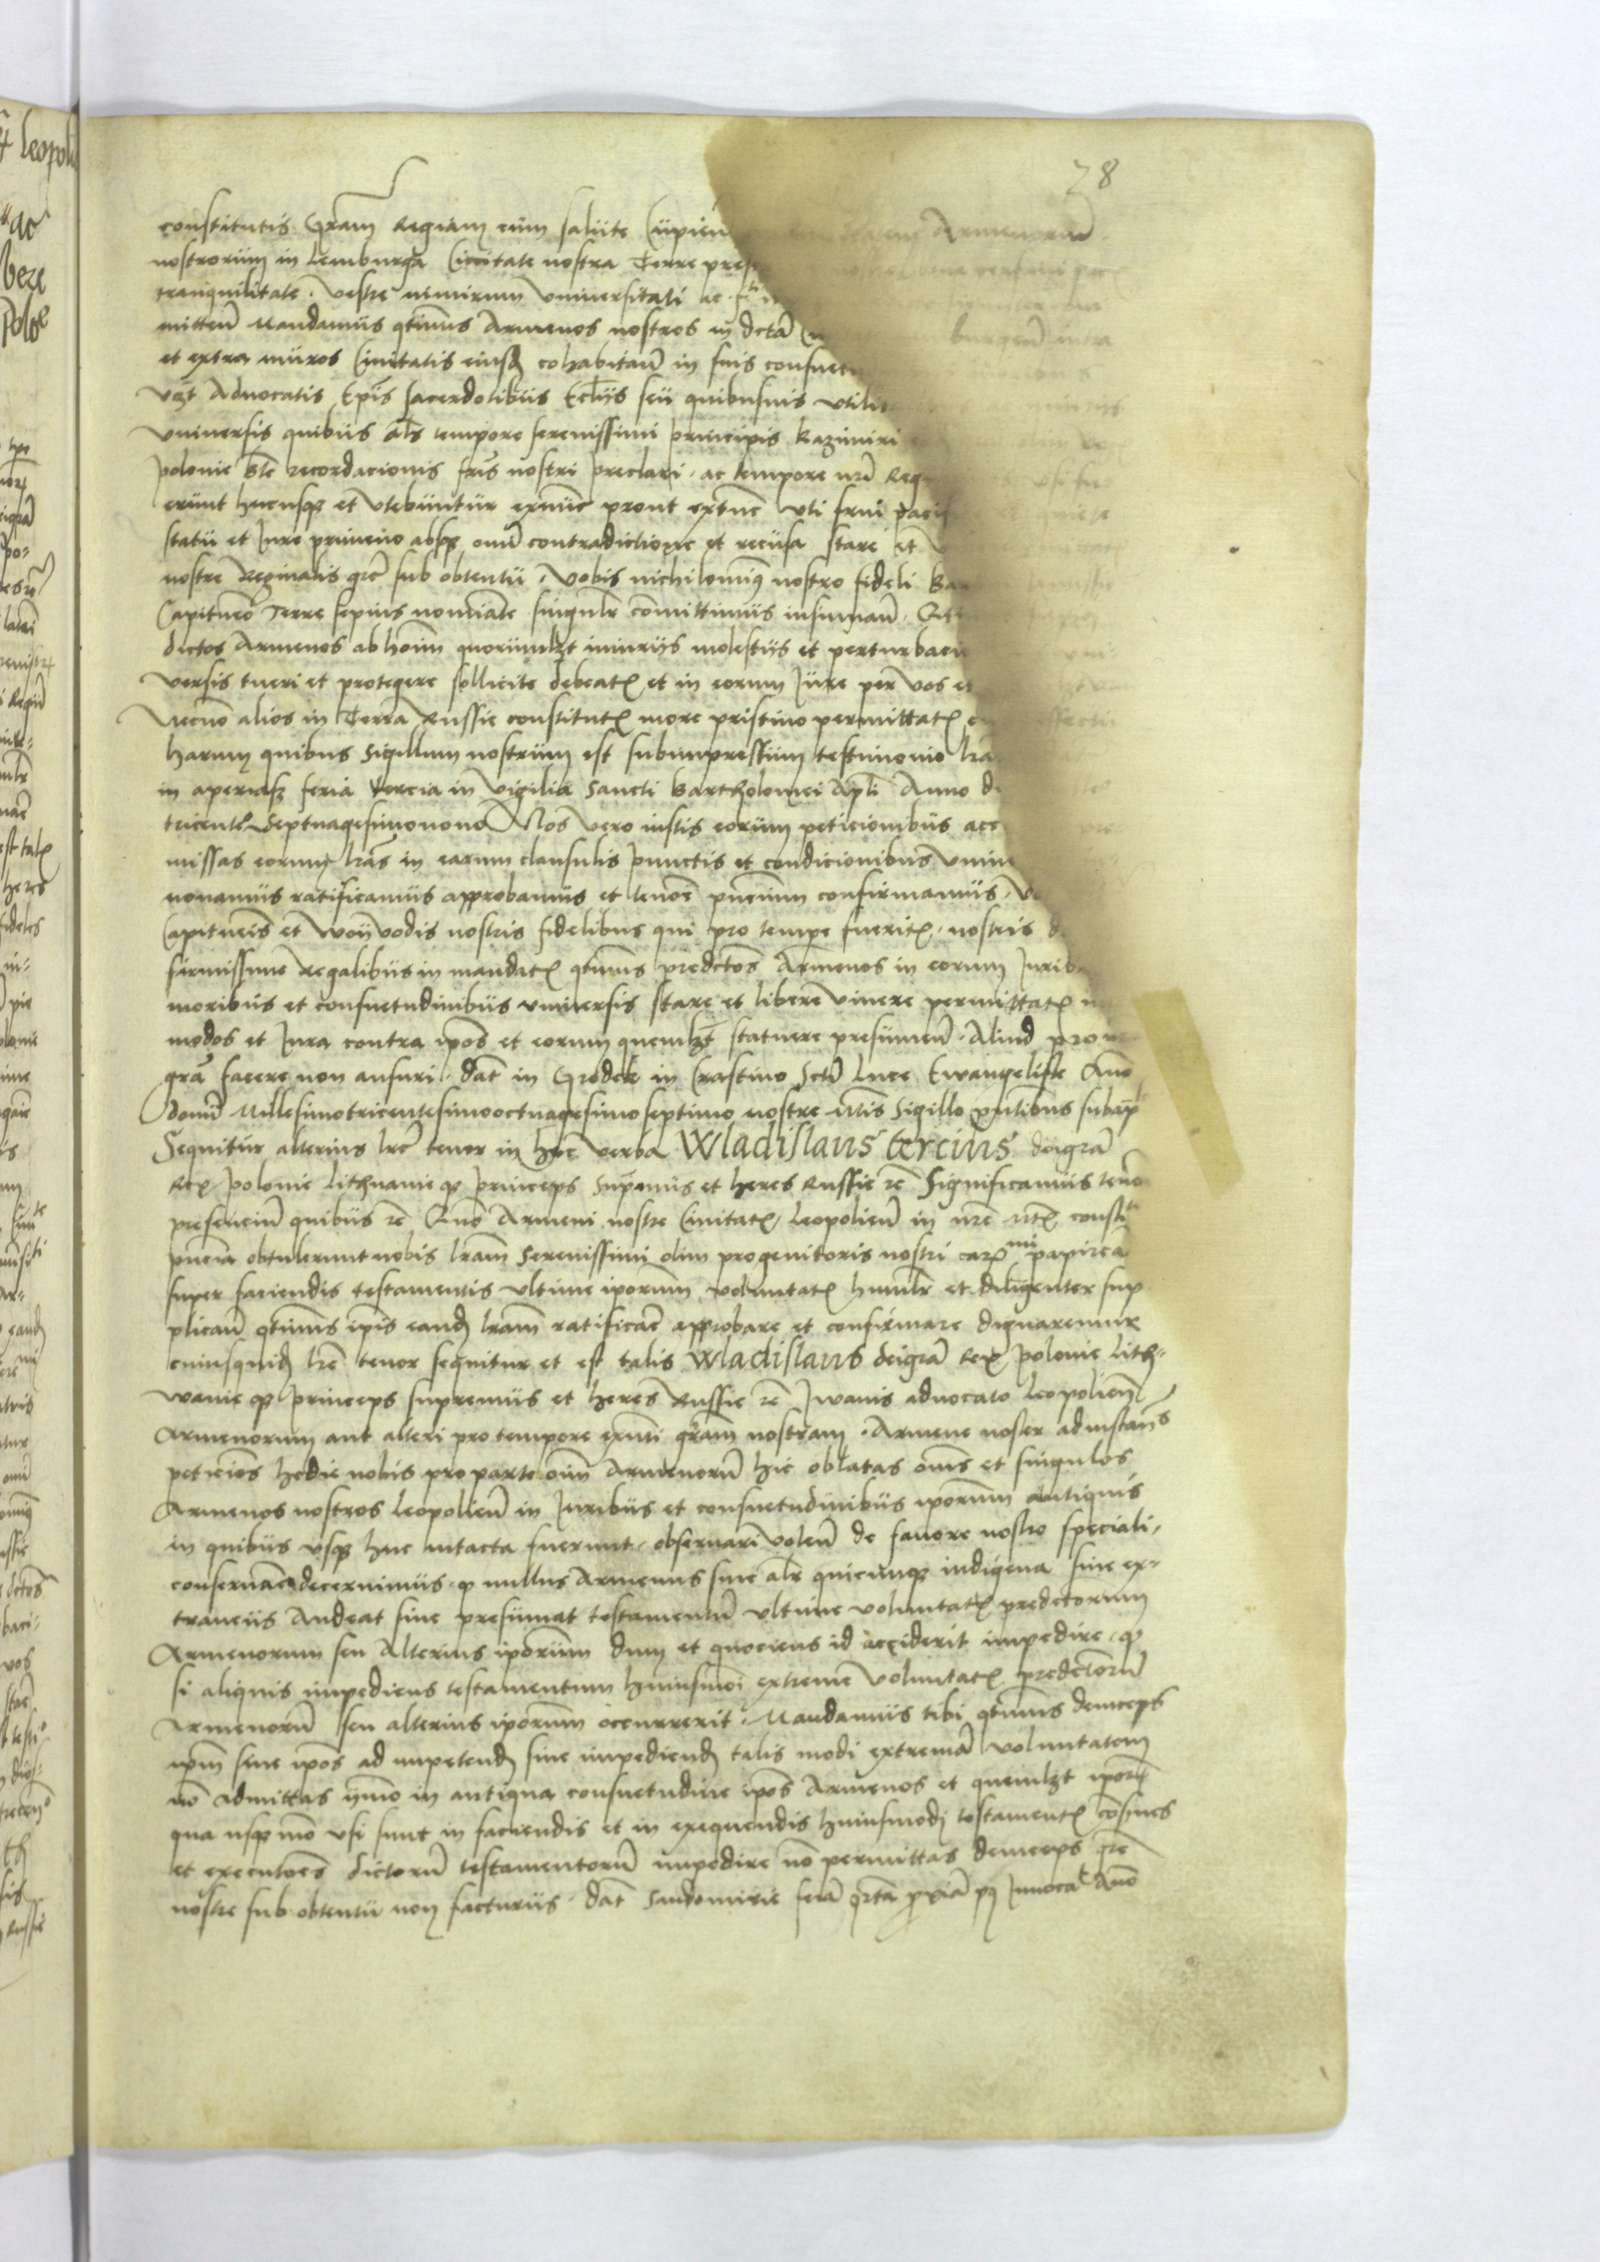 28
constitutis Gr̃am Regiam cum salute Cupien Armenorum
nostrorum in Lemburga Civitate nostra Terre pres
tranquilitate. Vestre nimirum Universitati ac
mitteñ Mandamus qtinus Armenos nostros in dctã burgeñ intra
et extra muros Civitatis eiusđ cohabitañ in suis consuet
vꝫt Advocatis Ep̃is sacerdotibus Eccliis seu quibusuis utilit
Universis quibus als tempore serenissimi principis Kazimiri
polonie recordacionis fris nostri preclari. ac tempore nr̃i Reg
erunt hucusqꝫ et utebuntur exnunc prout extunc uti frui pacif
statu et Jure primevo absqꝫ omi contradictione et recusa stare et
nostre Reginalis grẽ sub obtentu. Vobis nichilominꝯ nostro fideli
Capitaneo Terre sepius nominate singulr̃ com̃ittimus
dictos Armenos ab hoim quorumlꝫt iniuriis molestiis et perturbaci
versis tueri et protegere sollicite debeatꝭ et in eorum Jure per vos et
Necno alios in Terra Russie constitutꝭ more pristino permittatꝭ
harum quibus Sigillum nostrum est subimpressum testimonio lr̃a
in feria tercia in vigilia Sancti Bartholomei Apli Anno d
tricento Septuagesimonono Nos vero iustis eorum peticionibus acc
missas eorum lr̃as in earum clausulis punctis et condicionibus
novamus ratificamus approbamus et tenore confirmamus.
Capitneis et Woÿvodis nostris fidelibus qui pro tempe fueritꝭ. nostris d
firmissime Regalibus in mandatꝭ qtinus predctos Armenos in eorum Jurib
moribus et consuetudinibus universis stare et libere vivere permittatꝭ
modos et Jura contra ip̃os et eorum quemlꝫt statuere presumeñ. Aliud pro
gra facere non ausuri. Dat̃ in Grodek in Crastino Scti Luce Ewangeliste Año
domi Millesimotricentesimooctuagesimoseptimo nostre Sigillo
Sequitur alterius lr̃e tenor in hec verba Wladislaus tercius deigr̃a
Rex Polonie Lithuanie qꝫ princeps Supremus et heres Russie rc̃ Significamus
presenciũ quibus rc̃ Quo Armeni nostre Civitatꝭ Leopolieñ in
obtulerunt nobis lr̃am Serenissimi olim progenitoris nostri carmi
super faciendis testamentis ultime ip̃orum voluntatꝭ humilr̃ et diligenter sup
plicañ qtinus ip̃is eanđ lr̃am ratificare approbare et confirmare dignaremur
cuiusquiđ lr̃e tenor sequitur et est talis Wladislaus deigr̃a Rex Polonie Lith-
wanie qꝫ princeps supremus et heres Russie rc̃ Jwanis advocato Leopolieñ
Armenorum aut alteri pro tempore exñti gr̃am nostram. Armene noster ad instans
peticiões hodie nobis pro parte om̃i Armenorũ hic oblatas oms et singulos
Armenos nostros Leopolieñ in Juribus et consuetudinibus ip̃orum antiquis
in quibus usqꝫ huc intacta fuerunt. observari voleñ de favore nostro speciali.
conservare decernimus. qꝫ nullus Armenus sive alr̃ quicunqꝫ indigena sive ex-
traneus Audeat sive presumat testamentũ ultime voluntatꝭ predctorum
Armenorum seu Alterius ip̃orum dum et quociens id acciderit impedire. qꝫ
si aliquis impediens testamentum huiusmoi extreme voluntatꝭ predctorũ
Armenorũ seu alterius ip̃orum occurrerit. Mandamus tibi qtinus deinceps
ip̃m sive ip̃os ad impetenđ sive impedienđ talis modi extremã voluntatem
nõ admittas ymo in antiqua consuetudine ip̃os Armenos et quemlꝫt ip̃orũ
qua usqꝫ mõ usi sunt in faciendis et in exequendis huiusmodi testamentꝭ
et executoẽs dictorũ testamentorũ impedire nõ permittas deinceps grẽ
nostre sub obtentu non facturus. Dat̃ Sandomirie fer̃a qrta p̃xia pꝯ Invocat̃ Año